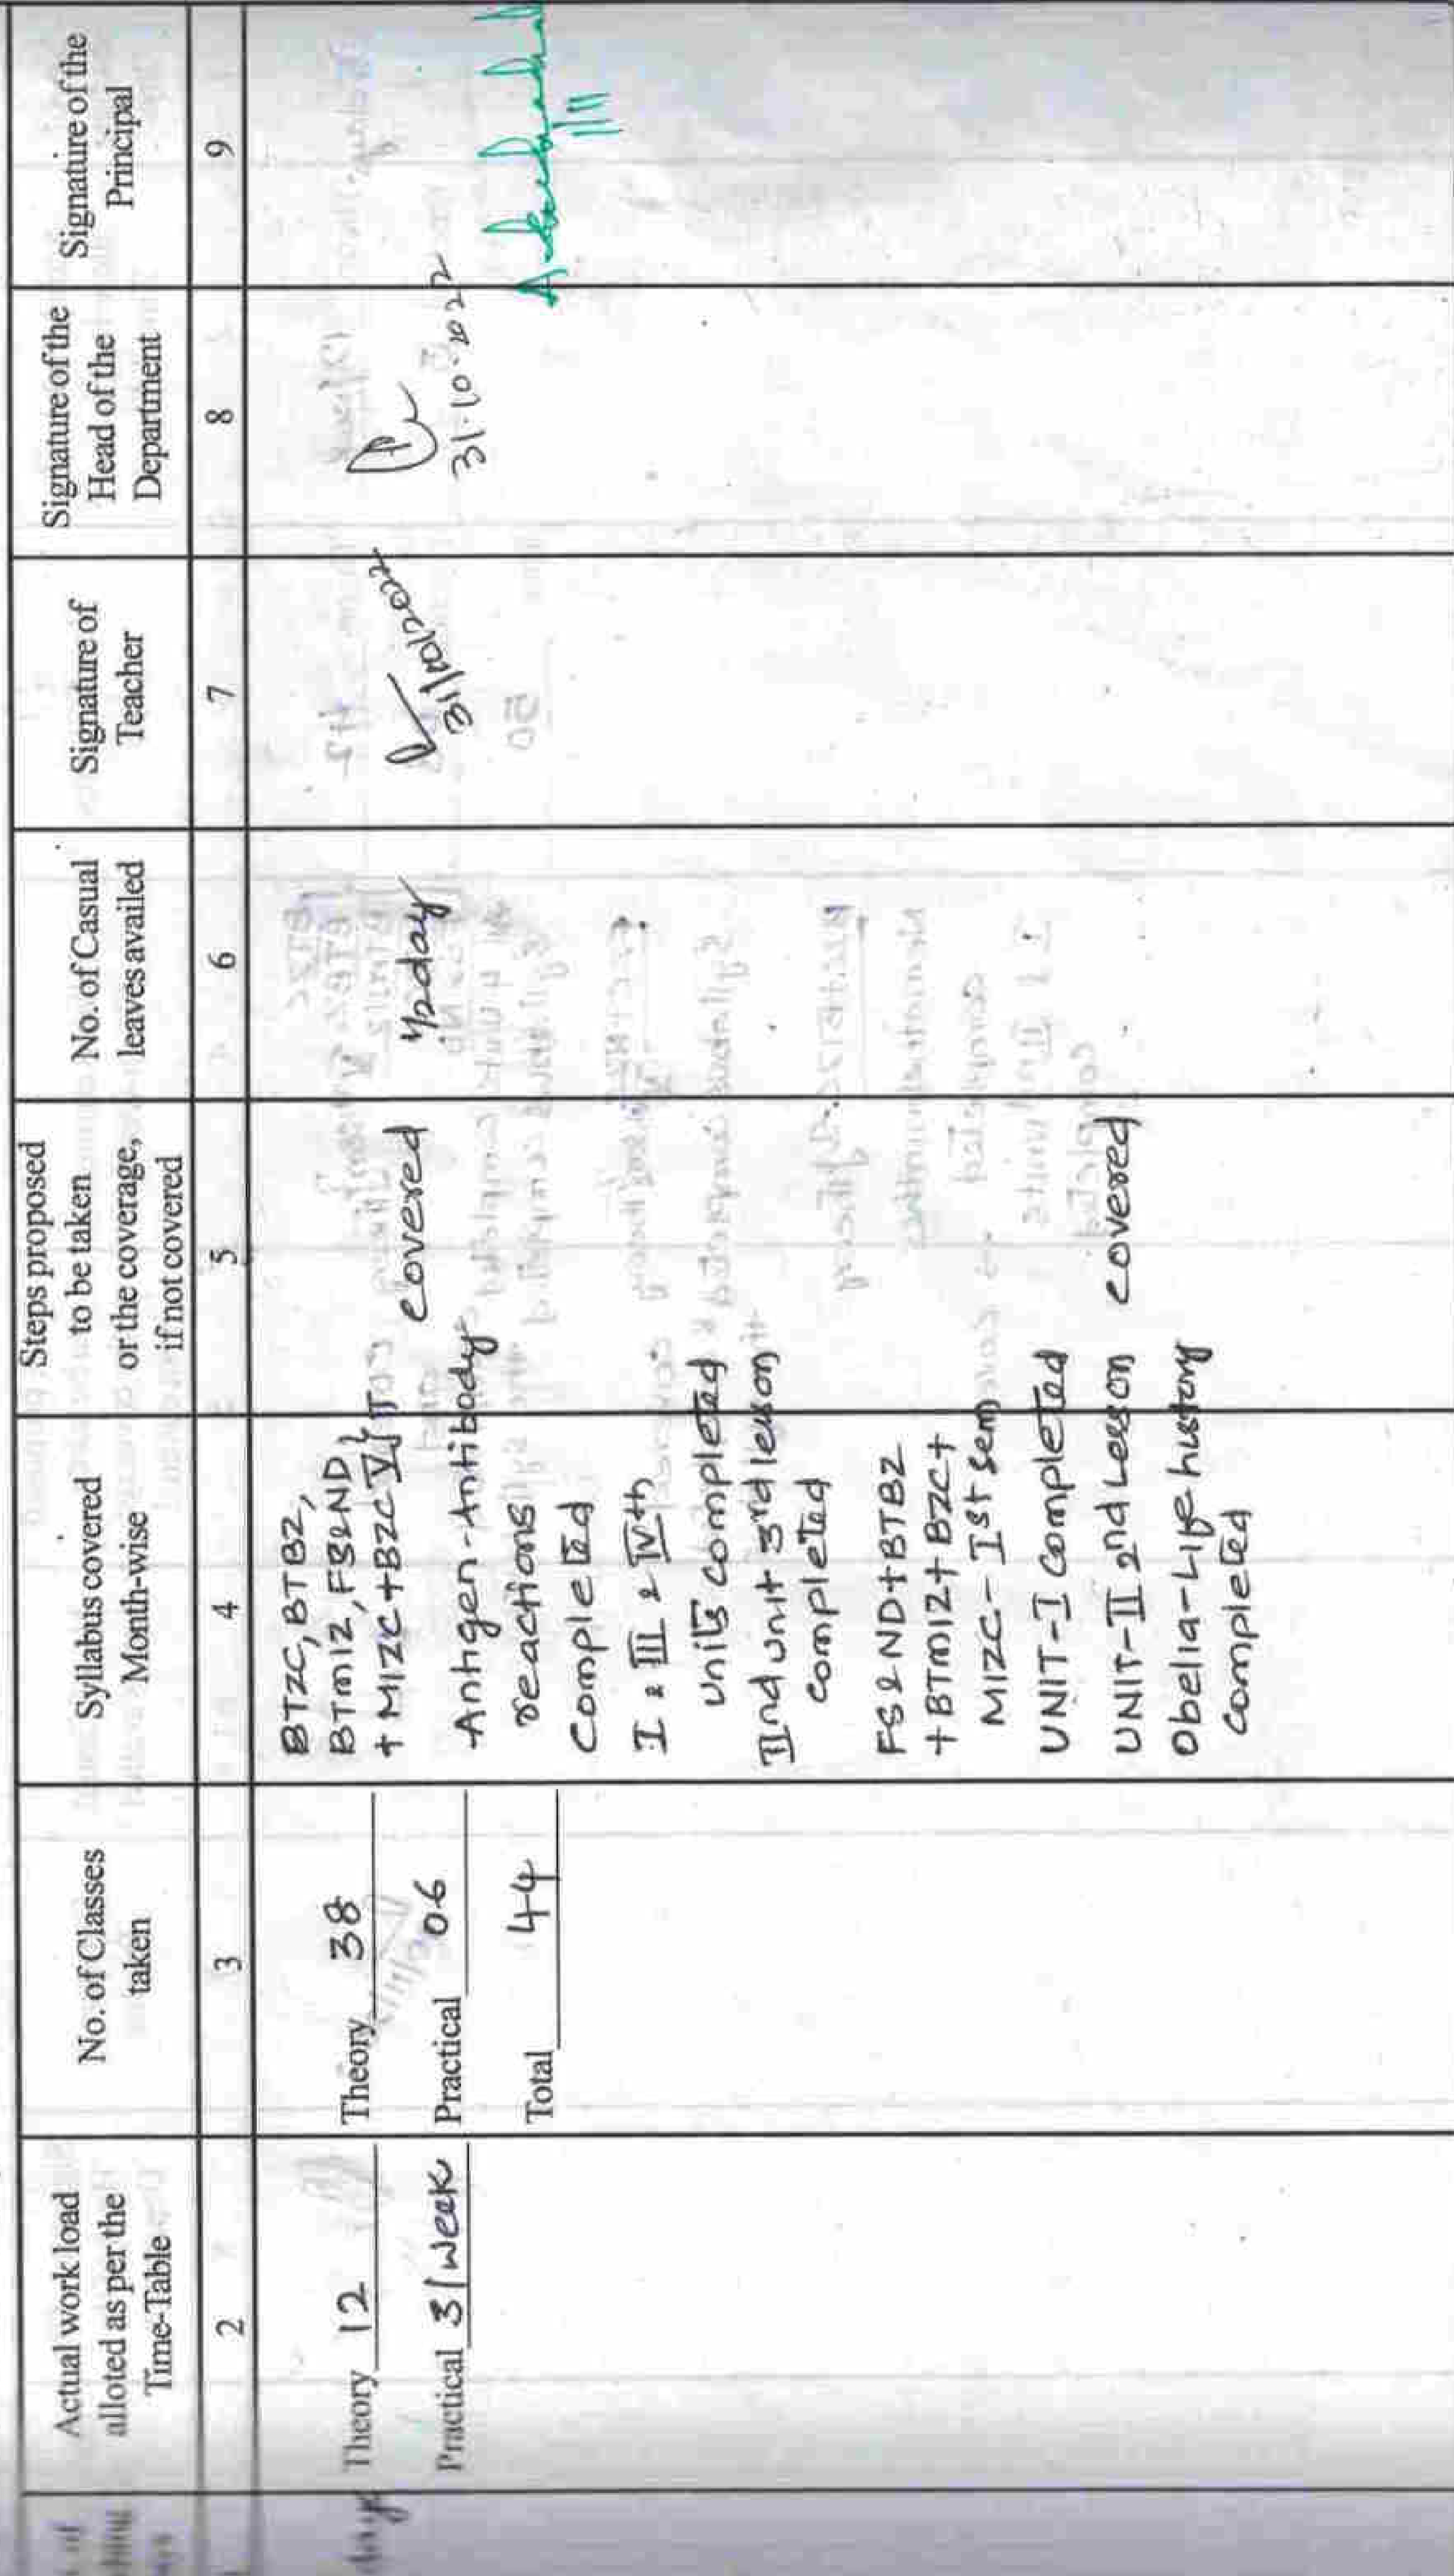 Actual work load
alloted as per the
Time-Table
No. of Classes
taken
Syllabus covered
Month-wise
Steps proposed
to be taken
or the coverage,
if not covered
No. of Casual
leaves availed
Signature of
Teacher
Signature of the
Head of the
Department
Signature of the
Principal
2
3
4
5
6
7
8
9
days
Theory 12
Practical 3/week
Theory 38
Practical 06
Total 44
BTZC, BTBZ,
BTMIZ, FS&ND
+ MIZC + BZC
Antigen-Antibody
reactions
Completed
I & III & IVth
units completed
IInd unit 3rd lesson
completed
FS & ND + BTBZ
+ BTMIZ + BZC +
MIZC - Ist sem
UNIT-I Completed
UNIT-II 2nd Lesson
Obelia-Life history
completed
covered
covered
1/2 day
31/10/2022
31-10-2022
1/11